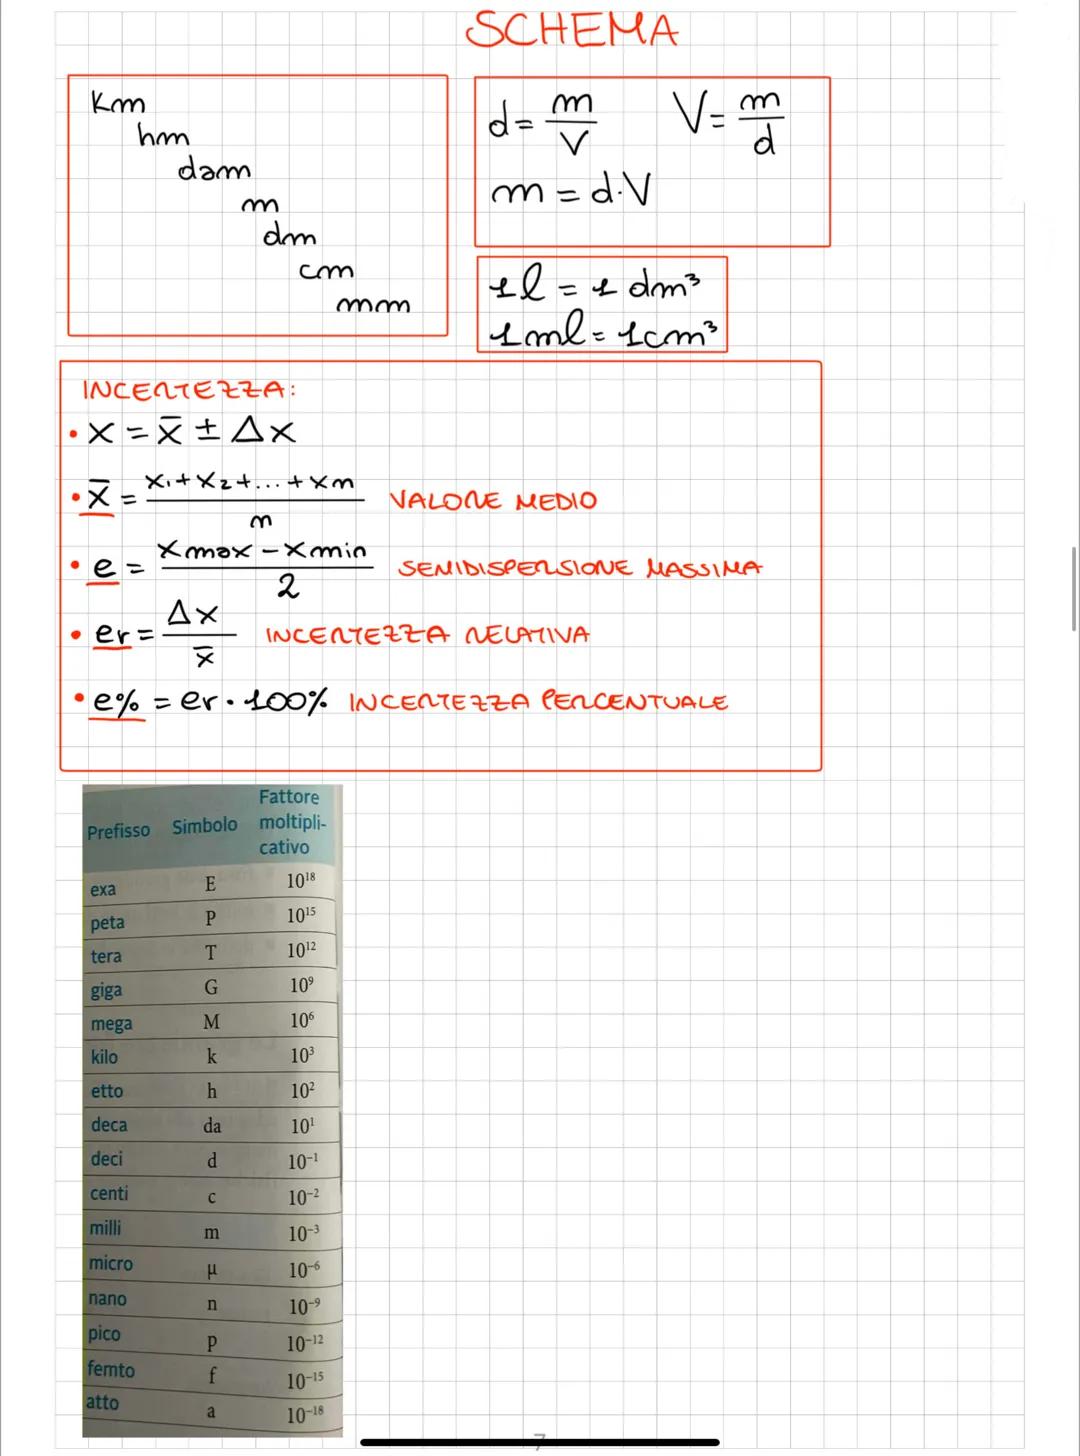 SCHEMA
Km
hm
dam
m
dm
cm
mm
d = m/V    V = m/d
m = d·V
1l = 1 dm³
1ml = 1cm³
INCERTEZZA:
• x = x̄ ± Δx
• x̄ = (x₁ + x₂ + ... + xn)/n VALORE MEDIO
• e = (xmax - xmin)/2 SEMIDISPERSIONE MASSIMA
• er = Δx/x̄ INCERTEZZA RELATIVA
• e% = er · 100% INCERTEZZA PERCENTUALE
Prefisso Simbolo Fattore moltipli-
cativo
exa E 10¹⁸
peta P 10¹⁵
tera T 10¹²
giga G 10⁹
mega M 10⁶
kilo k 10³
etto h 10²
deca da 10¹
deci d 10⁻¹
centi c 10⁻²
milli m 10⁻³
micro µ 10⁻⁶
nano n 10⁻⁹
pico p 10⁻¹²
femto f 10⁻¹⁵
atto a 10⁻¹⁸